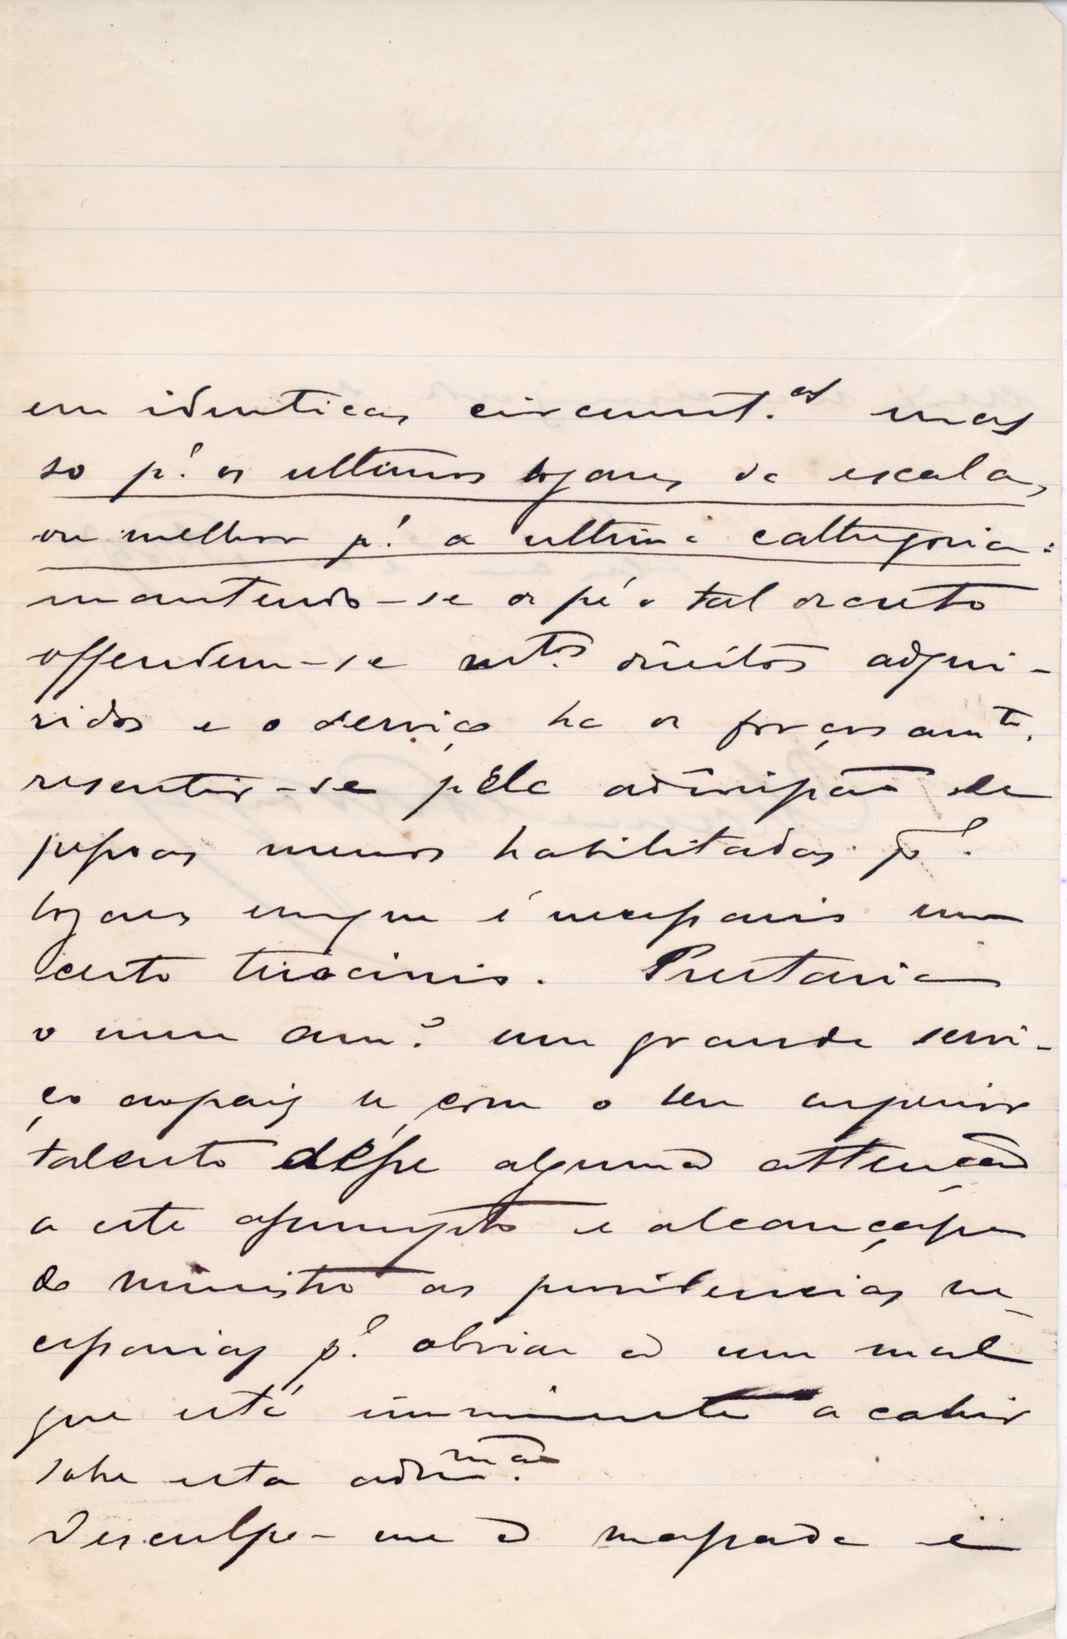 em identicas circumst.as mas
so p.a os ultimos logares da escala,
ou melhor p.a a ultima cathegoria:
mantendo-se de pé o tal decreto
offendem-se mtos direitos adqui-
ridos e o serviço ha de forçosamte.
resentir-se pela admissão de
pessoas menos habilitadas p.a
logares em que é necessario um
certo tirocinio. Prestaria
o meu am.o um grande servi-
ço ao paiz se, com o seu superior
talento désse alguma attenção
a este assumpto e alcançasse
do ministro as providencias ne-
cessarias p.a obviar a um mal
que está imminente a cahir
sobre esta admmão.
Desculpe-me a massada e